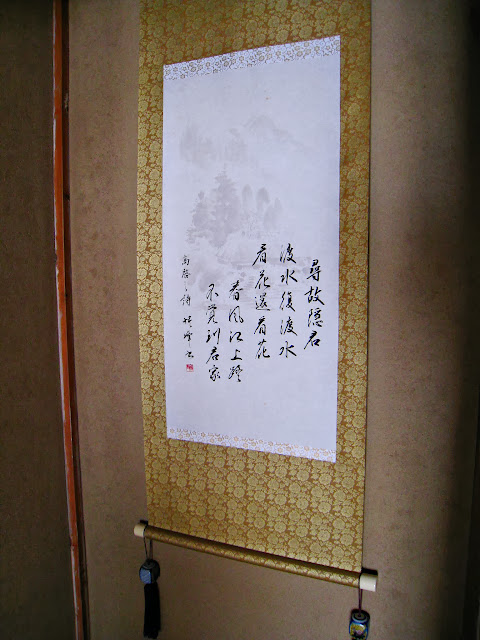 尋故隠君
渡水復渡水
看花還看花
春風江上路
不覚到君家
高啓之詩